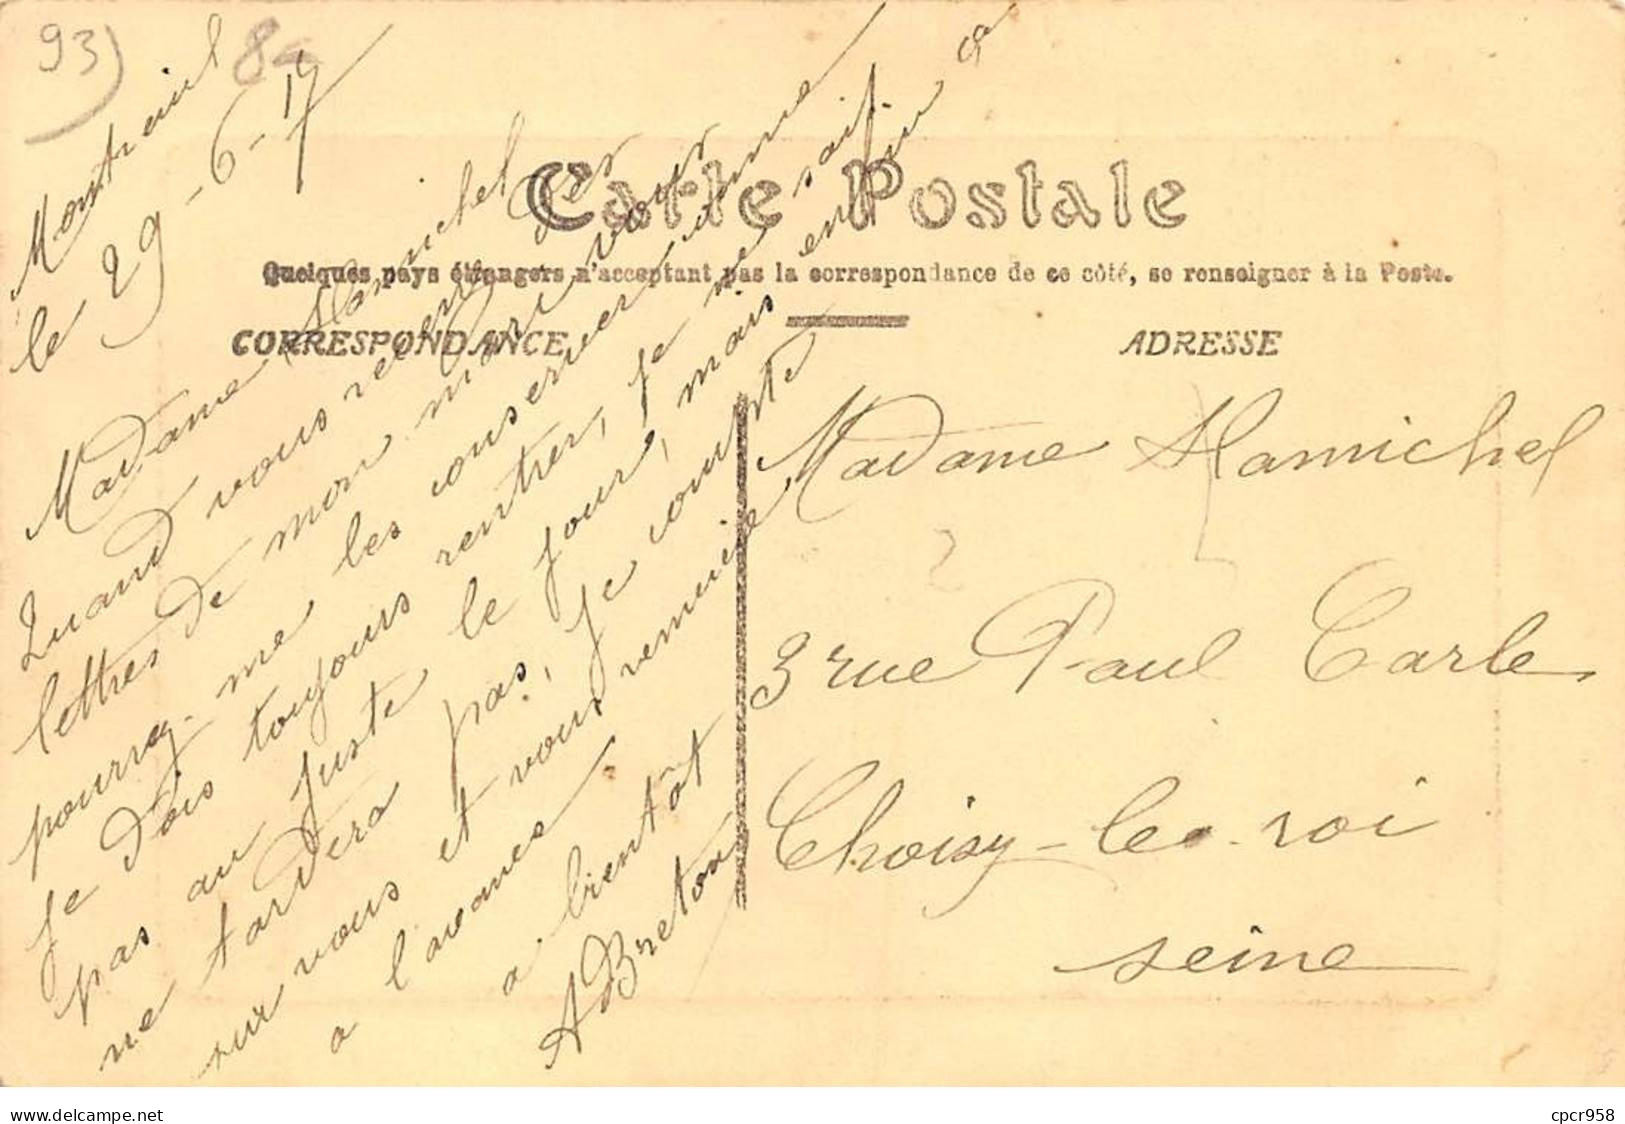 93)
Montreuil
le 29-6-17
Carte Postale
Quelques pays étrangers n'acceptant pas la correspondance de ce côté, se renseigner à la Poste.
CORRESPONDANCE
ADRESSE
Madame Hamichel
Quand vous recevrez des
lettres de mon mari vous
pourrez me les conserver comme
je dois toujours rentrer, je ne sait
pas au juste le jour, mais enfin ça
ne tardera pas, je compte
sur vous et vous remercie
a l'avance
a bientôt
A Breton
Madame Hamichel
3 rue Paul Carle
Choisy-le-roi
seine
cpcr958
www.delcampe.net